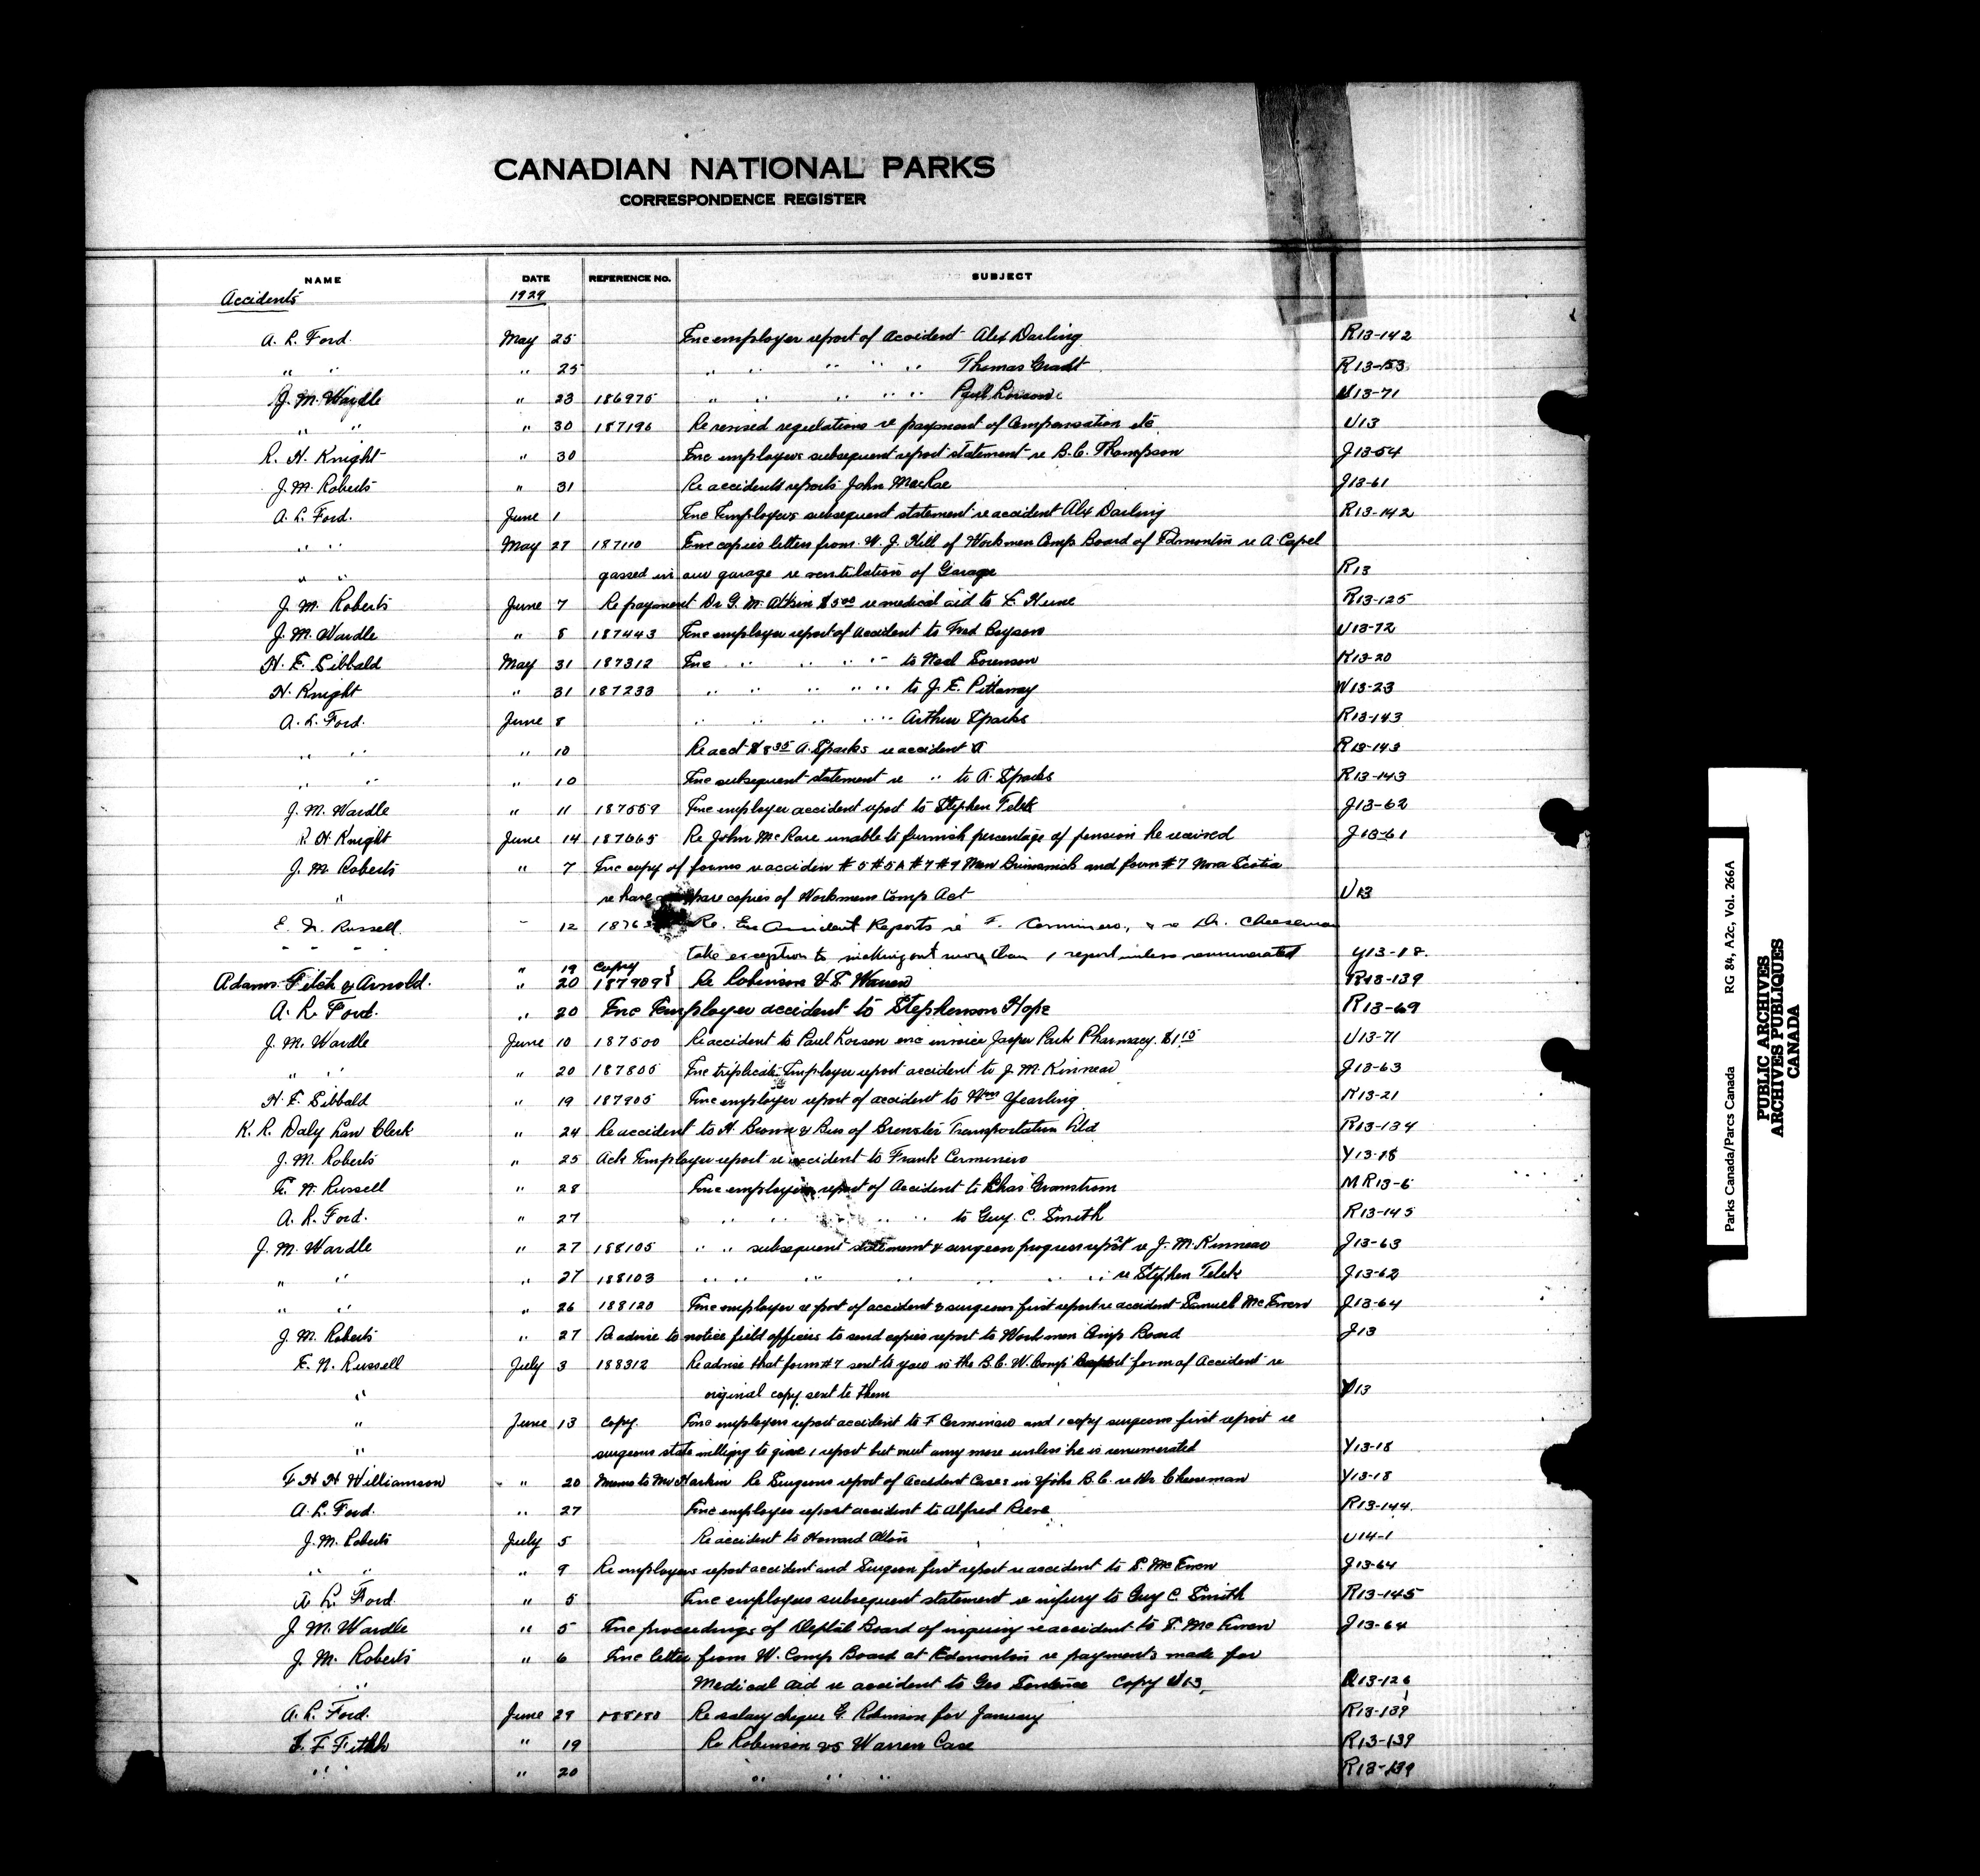 CANADIAN NATIONAL PARKS
CORRESPONDENCE REGISTER
NAME DATE REFERENCE No. SUBJECT
Accidents 1929
A. L. Ford. May 25 Enc employer report of Accident Alex Darling R13-142
" " " 25 " " " " " Thomas R13-153
J. M. Wardle " 23 186975 " " " " " U13-71
" " " 30 187196 Re revised regulations re payment of Compensation etc U13
R. H. Knight " 30 Enc employers subsequent report statement re B.C. Thompson J13-54
J. M. Roberts " 31 Re accidents reports John MacRae J13-61
A. L. Ford. June 1 Enc Employers subsequent statement re accident Alex Darling R13-142
" " May 27 187110 Enc copies letters from W. J. Hill of Workmen Comp Board of Edmonton re A. Capel
" " gassed in our garage re ventilation of Garage R13
J. M. Roberts June 7 Re payment Dr G. M. Atkin $5.00 re medical aid to R13-125
J. M. Wardle " 8 187443 Enc employer report of Accident to Fred U13-72
H. E. Sibbald May 31 187312 Enc " " " " to Neal Sorenson K13-20
H. Knight " 31 187233 " " " " " to J. E. Pittaway W13-23
A. L. Ford. June 8 " " " " " Arthur Sparks R13-143
" " " 10 Re acct $8.35 A. Sparks re accident R13-143
" " " 10 Enc subsequent statement re " to A. Sparks R13-143
J. M. Wardle " 11 187559 Enc employer accident report to Stephen Telek J13-62
R. H. Knight June 14 187665 Re John McRae unable to furnish percentage of pension he received J13-61
J. M. Roberts " 7 Enc copy of forms re acciden #5 #5A #7 #9 New Brunswick and form #7 Nova Scotia
" re have spare copies of Workmens Comp Act U13
E. N. Russell. " 12 1876 Re. Enc Accident Reports re F. Corminero, & re Dr. Cheeseman
" " " take exception to making out more than 1 report unless remunerated Y13-18.
" 19 copy
Adams Fitch & Arnold. " 20 187909 Re Robinson & S Warren R13-139
A. L. Ford. " 20 Enc Employer accident to Stephenson Hope R13-69
J. M. Wardle June 10 187500 Re accident to Paul enc invoice Jasper Park Pharmacy. $1.15 U13-71
" " " 20 187805 Enc triplicate Employer report accident to J. M. Kinnear J13-63
H. E. Sibbald " 19 187905 Enc employer report of accident to Wm Yearling K13-21
K. R. Daly Law Clerk " 24 Re accident to H. Brown & Bus of Brewster Transportation Ltd R13-134
J. M. Roberts " 25 Ack Employer report re accident to Frank Corminero Y13-18
E. N. Russell " 28 Enc employers report of Accident to Chas Granstrom M R13-6
A. L. Ford. " 27 " " " " " to Guy. C. Smith R13-145
J. M. Wardle " 27 188105 " " subsequent statement & surgeon progress report re J. M. Kinnear J13-63
" " " 27 188103 " " " " " " " re Stephen Telek J13-62
" " " 26 188120 Enc employer report of accident & surgeons first report re accident Samuel McEwen J13-64
J. M. Roberts " 27 Re advise to notice field officers to send copies report to Workmen Comp Board J13
E. N. Russell July 3 188312 Re advise that form #7 sent to you is the B.C. W. Comp Report form of Accident re
" original copy sent to them Y13
" June 13 copy. Enc employers report accident to F Corminero and 1 copy surgeons first report re
" surgeon state willing to give 1 report but not any more unless he is renumerated Y13-18
F H H Williamson " 20 Memo to Mr Harkin Re Surgeons report of Accident Cases in Yoho B.C. re Dr Cheeseman Y13-18
A. L. Ford. " 27 Enc employer report accident to Alfred Reeve R13-144.
J. M. Roberts July 5 Re accident to Howard U14-1
" " " 9 Re employers report accident and Surgeon first report re accident to S. McEwen J13-64
A. L. Ford " 5 Enc employers subsequent statement re injury to Guy C. Smith R13-145
J. M. Wardle " 5 Enc proceedings of Deptal Board of inquiry re accident to S. McEwen J13-64
J. M. Roberts " 6 Enc letter from W. Comp Board at Edmonton re payments made for
" Medical aid re accident to Geo Copy U13, R13-126
A. L. Ford. June 29 188180 Re salary cheque G. Robinson for January R13-139
F. Fitch " 19 Re Robinson vs Warren Case R13-139
" " " 20 " " " R13-139
Parks Canada/Parcs Canada RG 84, A2c, Vol. 266A
PUBLIC ARCHIVES
ARCHIVES PUBLIQUES
CANADA